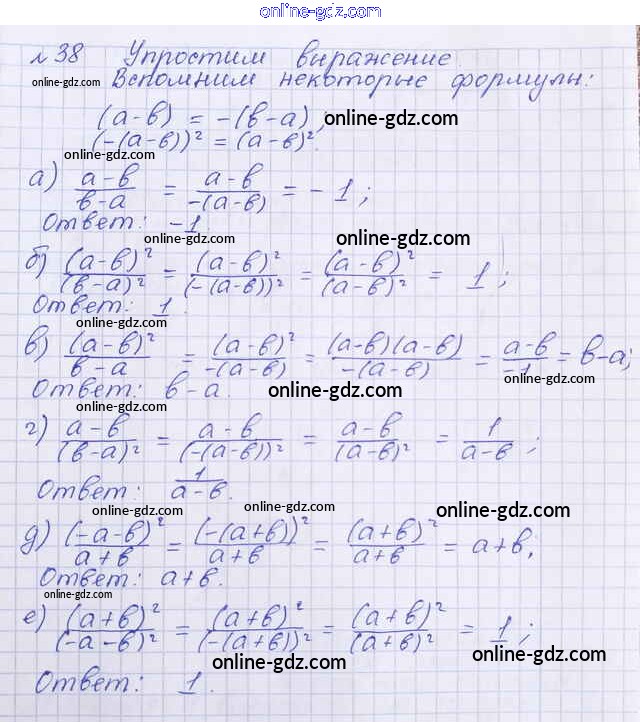 online-gdz.com
№ 38 Упростим выражение
Вспомним некоторые формулы:
online-gdz.com
(a-b) = -(b-a); online-gdz.com
(-(a-b))² = (a-b)².
online-gdz.com
а) (a-b)/(b-a) = (a-b)/(-(a-b)) = -1;
Ответ: -1.
online-gdz.com online-gdz.com
б) (a-b)²/(b-a)² = (a-b)²/(-(a-b))² = (a-b)²/(a-b)² = 1;
Ответ: 1.
online-gdz.com
в) (a-b)²/(b-a) = (a-b)²/(-(a-b)) = (a-b)(a-b)/(-(a-b)) = (a-b)/(-1) = b-a;
Ответ: b-a. online-gdz.com
online-gdz.com
г) (a-b)/(b-a)² = (a-b)/(-(a-b))² = (a-b)/(a-b)² = 1/(a-b);
Ответ: 1/(a-b).
online-gdz.com online-gdz.com online-gdz.com
д) (-a-b)²/(a+b) = (-(a+b))²/(a+b) = (a+b)²/(a+b) = a+b;
Ответ: a+b. online-gdz.com
online-gdz.com
е) (a+b)²/(-a-b)² = (a+b)²/(-(a+b))² = (a+b)²/(a+b)² = 1;
online-gdz.com online-gdz.com
Ответ: 1.
online-gdz.com